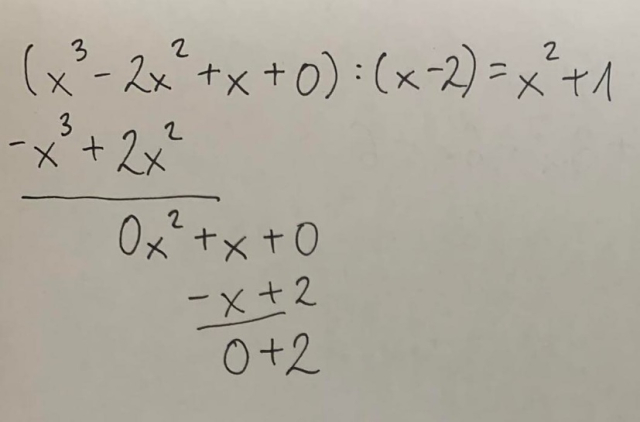 (x³ - 2x² + x + 0) : (x - 2) = x² + 1
-x³ + 2x²
0x² + x + 0
-x + 2
0 + 2